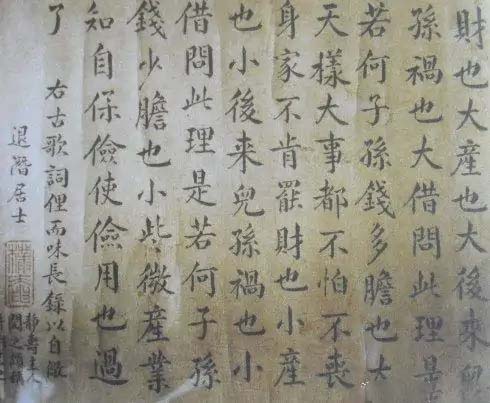 財也大產也大後來兒
孫禍也大借問此理是
若何子孫錢多膽也大
天樣大事都不怕不喪
身家不肯罷財也小產
也小後来兒孫禍也小
借問此理是若何子孫
錢少膽也小些微產業
知自保儉使儉用也過
了
右古歌詞俚而味長録以自儆
退潛居士
靜壽主人